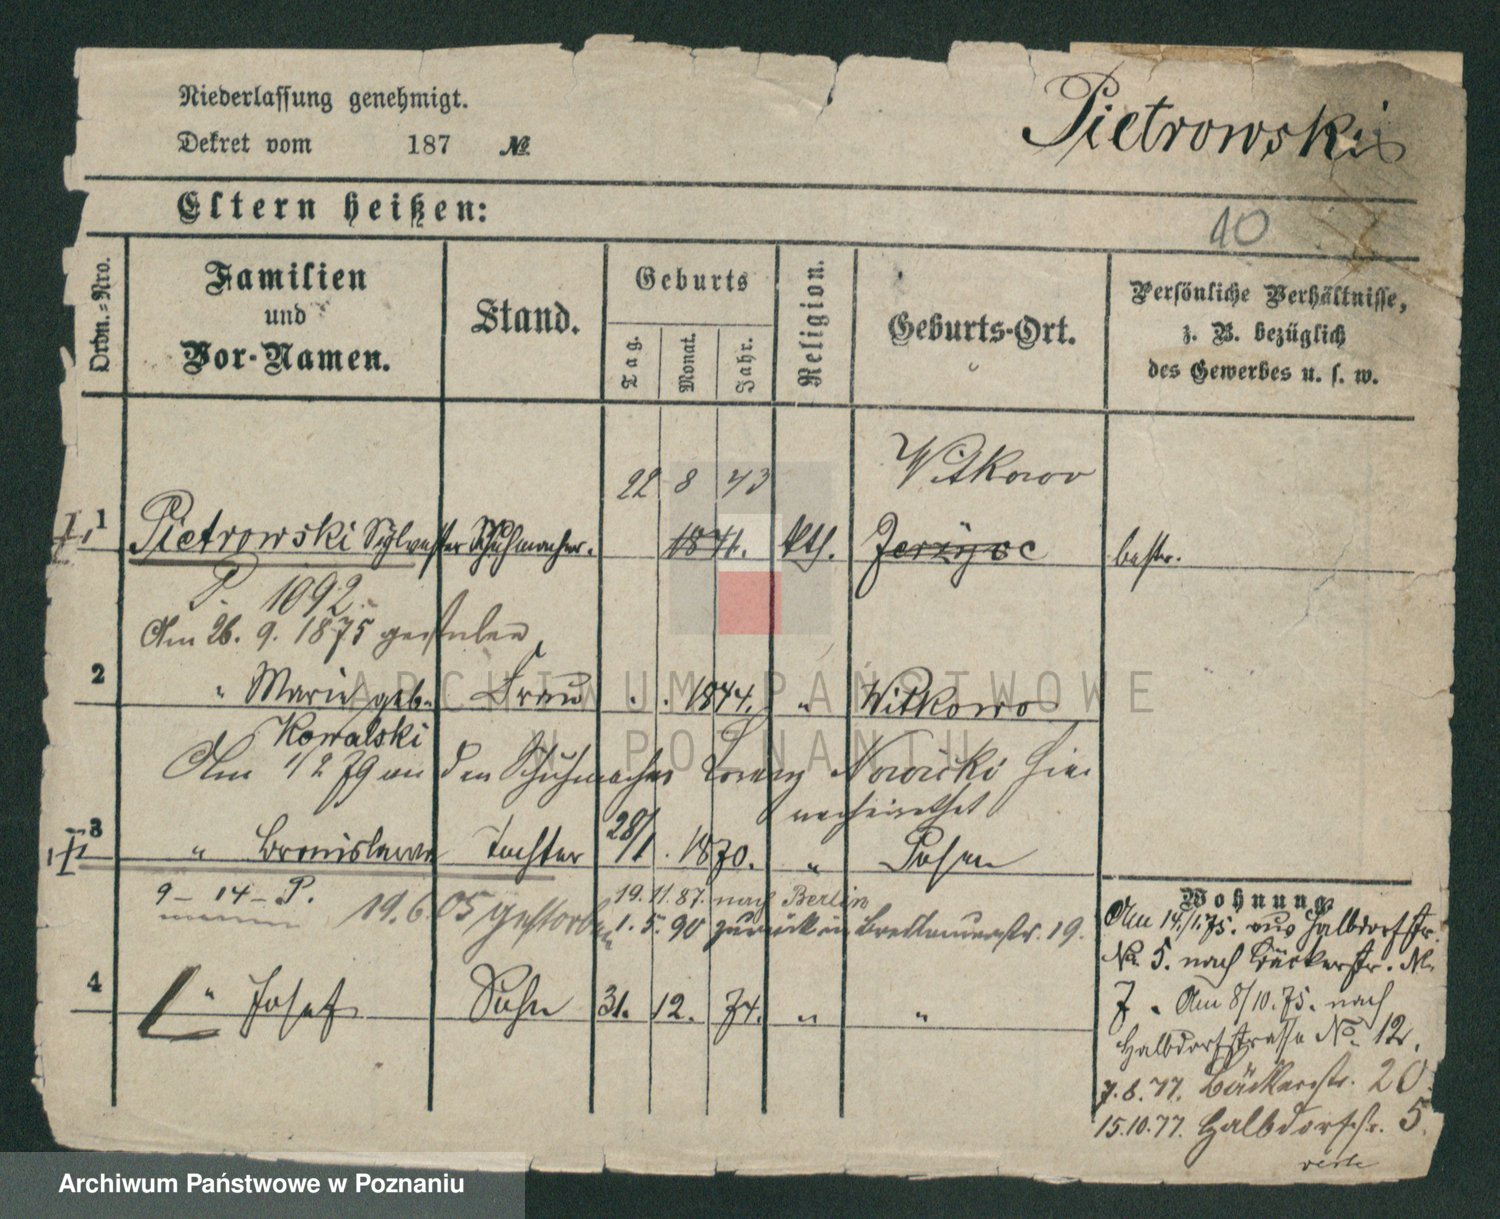 Niederlassung genehmigt.
Dekret vom 187 №
Pietrowski
Eltern heißen:
10
Ordn.-Nro.
Familien
und
Vor-Namen.
Stand.
Geburts
Tag.
Monat.
Jahr.
Religion.
Geburts-Ort.
Persönliche Verhältnisse,
z. B. bezüglich
des Gewerbes u. s. w.
22 8 43 Witkowo
1 Pietrowski Sylvester Schuhmacher. 1841. kth. Jerzyce bestr.
P. 1092
Am 26. 9. 1875 gestorben
2 " Marie geb. Frau . . 1844. " Witkowo
Kowalski
Am 1/2 79 an den Schuhmacher Lorenz Nowicki hier
verheirathet
3 " Bronislawa Tochter 28/1. 1870. " Posen
9 - 14 - P. 19.6.05 gestorben
19. 11. 87. nach Berlin
1. 5. 90 zurück in Breslauerstr. 19.
4 " Josef Sohn 31. 12. 74. " "
Wohnung.
Am 14/1.75. aus Halbdorfstr.
No 5. nach Bäckerstr. No
7. Am 8/10.75. nach
Halbdorfstrasse No. 12.
7.8.77. Bäckerstr. 20.
15.10.77. Halbdorfstr. 5.
verte
ARCHIWUM PAŃSTWOWE
W POZNANIU
Archiwum Państwowe w Poznaniu